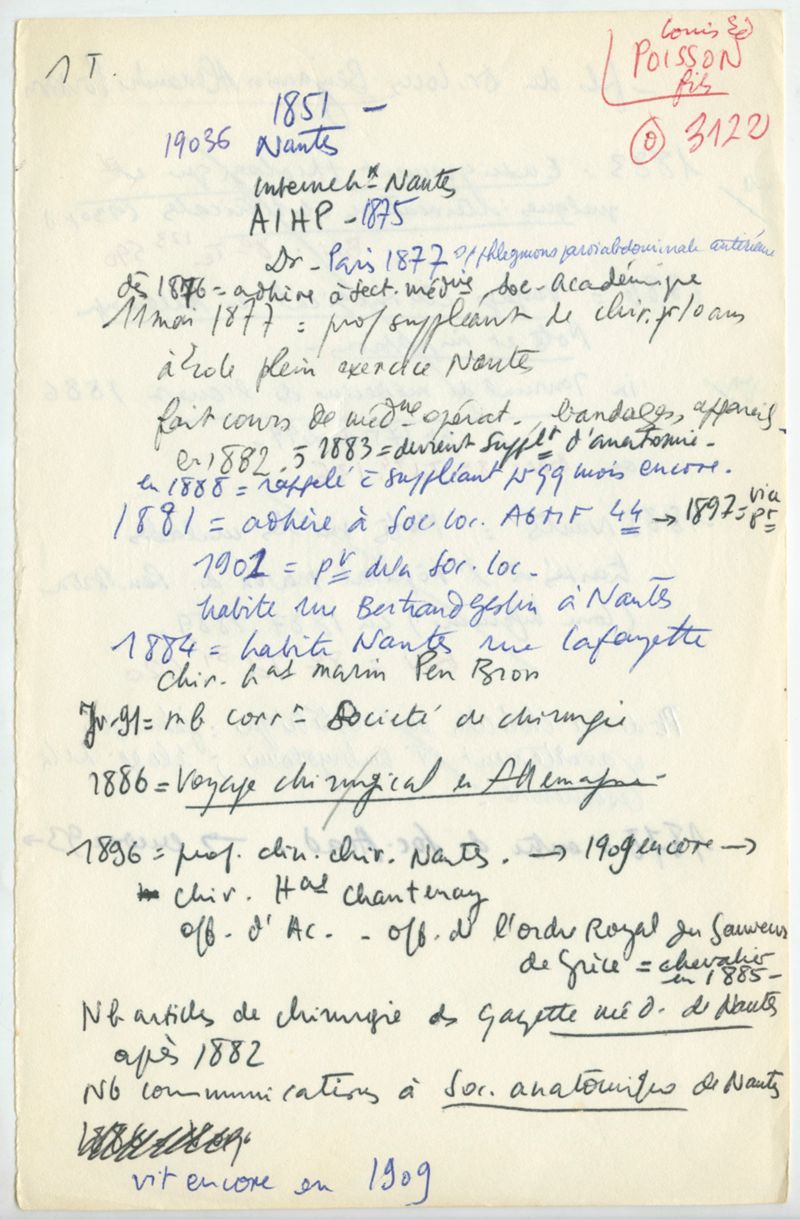 1 T.
Louis Éd
POISSON
fils
(0) 3122
1851 –
19036 Nantes
Interne hx Nantes
AIHP – 1875
Dr – Paris 1877 phlegmons paroi abdominale antérieure
dès 1876 = adhère à sect. médne Soc. Académique
11 mai 1877 = prof suppléant de chir. pr 10 ans
à École plein exercice Nantes
fait cours de médne opérat., bandages, appareils
en 1882. 1883 = devient supplt d'anatomie.
en 1888 = rappelé c suppléant pr 99 mois encore.
1881 = adhère à Soc. loc. AGMF 44 → 1897 = vice pr
1901 = pr de la Soc. loc.
habite rue Bertrand Geslin à Nantes
1884 = habite Nantes rue Lafayette
chir. hal marin Pen Bron
Jr-91 = mb corrt Société de chirurgie
1886 = Voyage chirurgical en Allemagne –
1896 = prof. clin. chir. Nantes. → 1909 encore →
chir. Hal Chantenay
off. d'Ac. – off. de l'ordre Royal du Sauveur
de Grèce = chevalier
en 1885 –
Nb articles de chirurgie ds Gazette méd. de Nantes
après 1882
Nb communications à Soc. anatomique de Nantes
vit encore en 1909